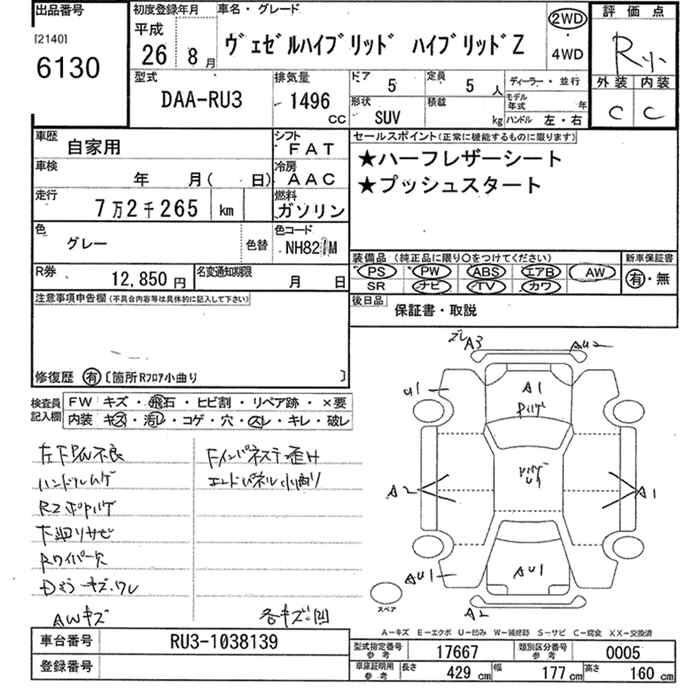 出品番号
[2140]
6130
初度登録年月
平成
26 年 8 月
車名・グレード
ヴェゼルハイブリッド ハイブリッドZ
2WD
・
4WD
評価点
R
外装 内装
C C
型式
DAA-RU3
排気量
1496 CC
ドア 5
定員 5 人
形状 SUV
積載 kg
ディーラー・並行
モデル年式 年
ハンドル 左・右
車歴 自家用
シフト FAT
車検 年 月( 日)
冷房 AAC
走行 7万2千265 km
燃料 ガソリン
色 グレー
色替
色コード NH82 M
R券 12,850円
名変通知期限 月 日
セールスポイント(正常に機能するものに限ります)
★ハーフレザーシート
★プッシュスタート
装備品(純正品に限り○をつけてください)
PS PW ABS エアB AW
SR ナビ TV カワ
新車保証書
有・無
後日品
保証書・取説
注意事項申告欄(不具合内容等は具体的に記入して下さい)
修復歴 有 [箇所Rフロア小曲り ]
検査員記入欄
FW キズ・飛石・ヒビ割・リペア跡・×要
内装 キズ・汚レ・コゲ・穴・スレ・キレ・破レ
ハンドルハゲ
下廻リサビ
Rワイパー欠
AWキズ
エンドパネル小曲り
各キズ凹
A3
AU2
U1
A1
A2
A1
AU1
AU1
A2
スペア
A-キズ E-エクボ U-凹み W-補修跡 S-サビ C-腐食 XX-交換済
車台番号 RU3-1038139
登録番号
型式指定番号 参考 17667
類別区分番号 参考 0005
車庫証明用 参考 長さ 429 cm 幅 177 cm 高さ 160 cm